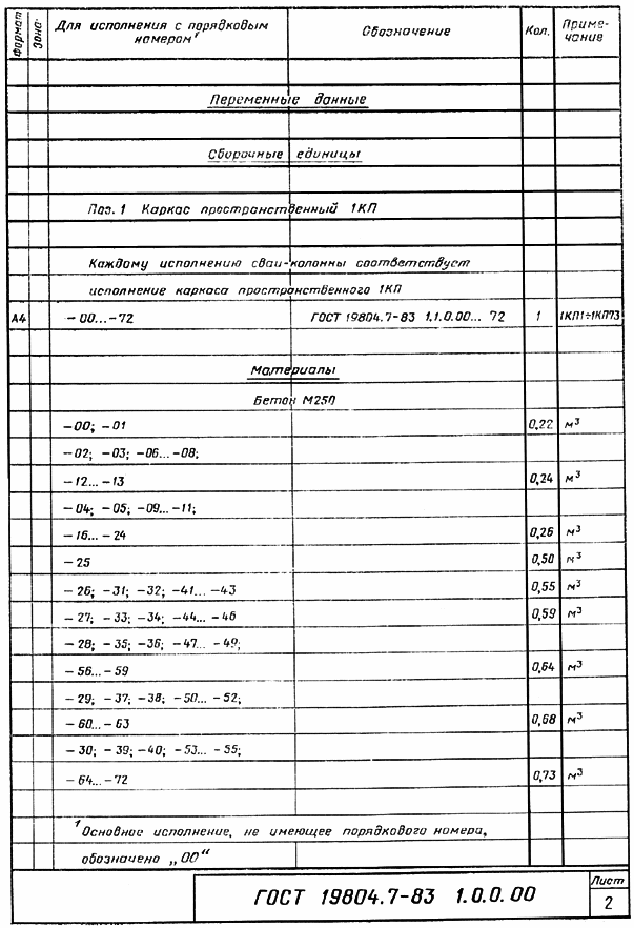 Формат
Зона
Для исполнения с порядковым номером¹
Обозначение
Кол.
Приме-
чание
Переменные данные
Сборочные единицы
Поз. 1 Каркас пространственный 1КП
Каждому исполнению сваи-колонны соответствует
исполнение каркаса пространственного 1КП
А4 -00...-72 ГОСТ 19804.7-83 1.1.0.00... 72 1 1КП1÷1КП73
Материалы
Бетон М250
-00; -01 0,22 м³
-02; -03; -06...-08;
-12...-13 0,24 м³
-04; -05; -09...-11;
-16...-24 0,26 м³
-25 0,50 м³
-26; -31; -32; -41...-43 0,55 м³
-27; -33; -34; -44...-46 0,59 м³
-28; -35; -36; -47...-49;
-56...-59 0,64 м³
-29; -37; -38; -50...-52;
-60...-63 0,68 м³
-30; -39; -40; -53...-55;
-64...-72 0,73 м³
¹Основное исполнение, не имеющее порядкового номера,
обозначено „00“
ГОСТ 19804.7-83 1.0.0.00
Лист
2